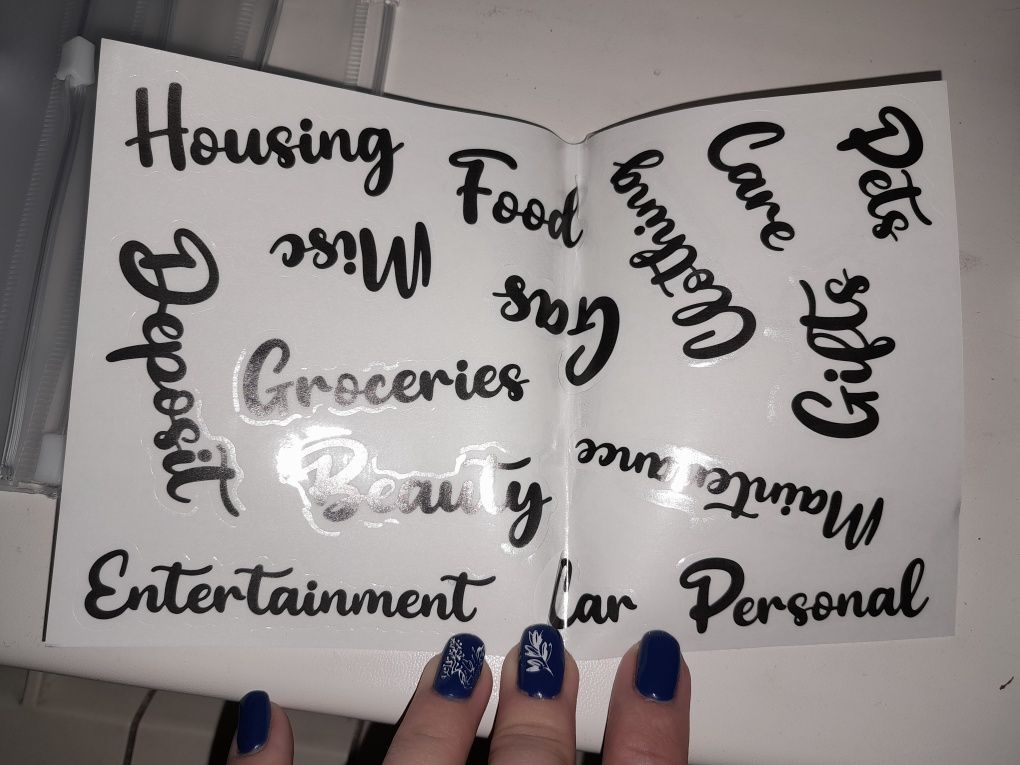 Housing
Food
Care
Pets
Clothing
Misc
Deposit
Gas
Gifts
Groceries
Beauty
Maintenance
Entertainment
Car
Personal